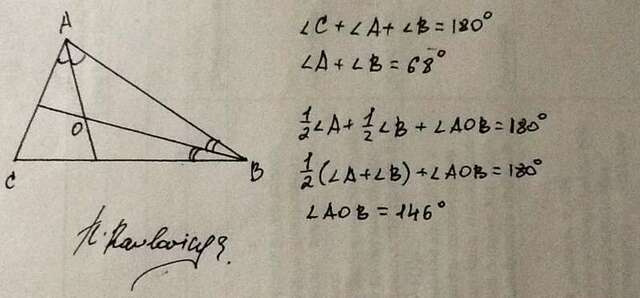 A
O
C
B
∠C + ∠A + ∠B = 180°
∠A + ∠B = 68°
1/2∠A + 1/2∠B + ∠AOB = 180°
1/2(∠A + ∠B) + ∠AOB = 180°
∠AOB = 146°